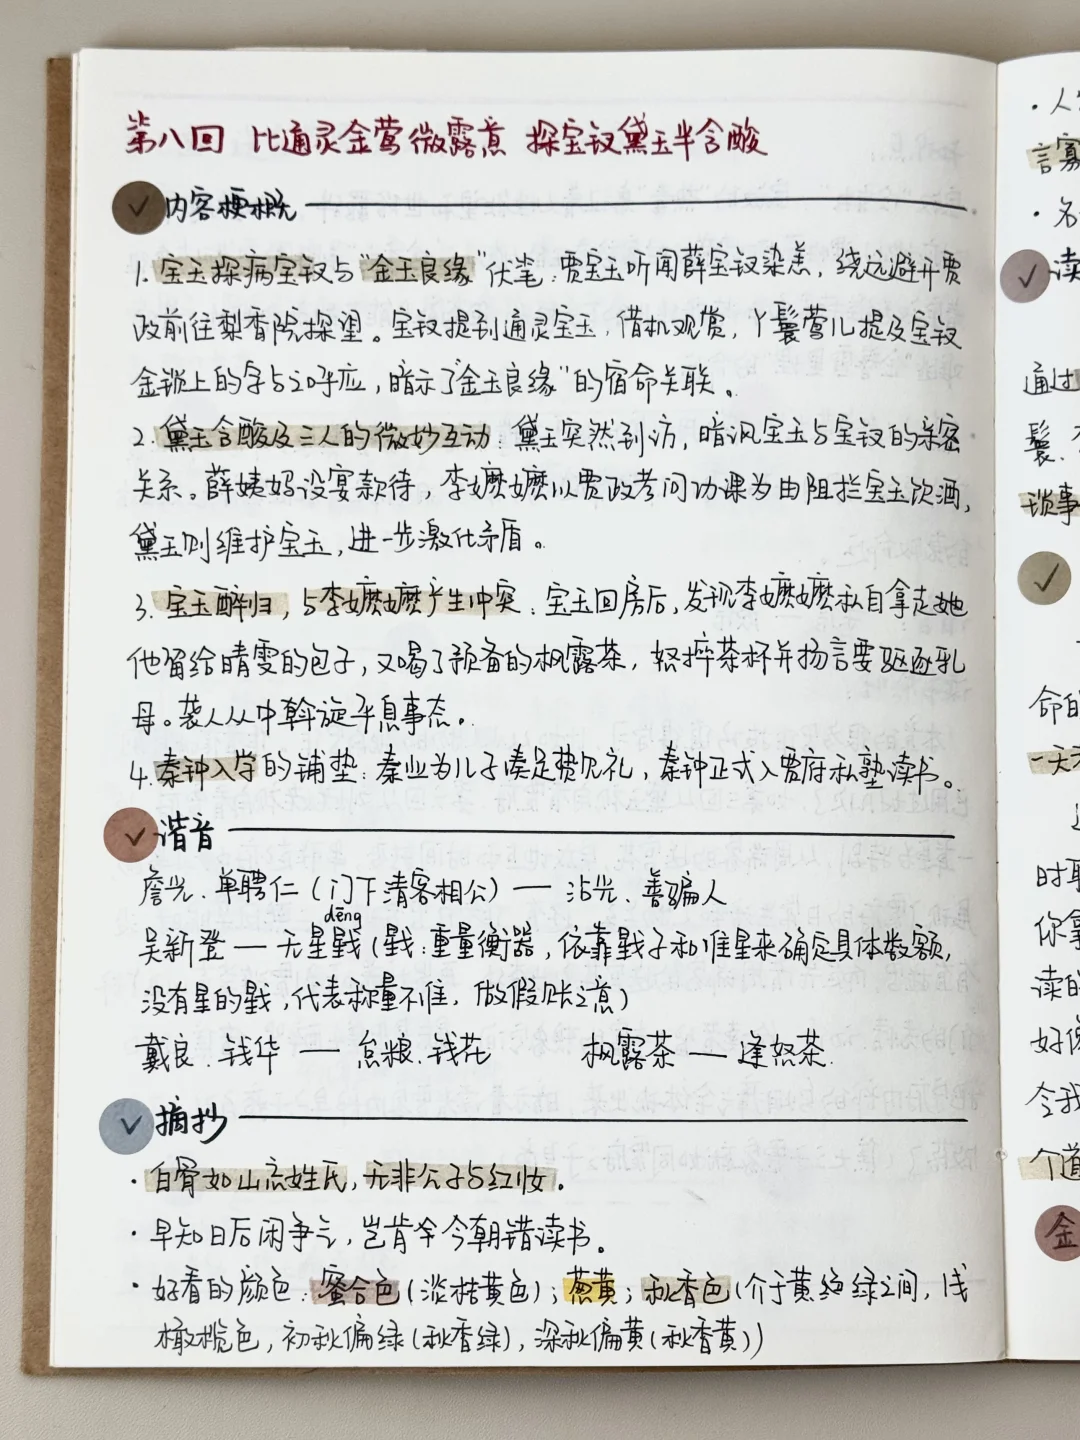 第八回 比通灵金莺微露意 探宝钗黛玉半含酸
内容梗概
1. 宝玉探病宝钗与“金玉良缘”伏笔：贾宝玉听闻薛宝钗染恙，绕远避开贾
政前往梨香院探望。宝钗提到通灵宝玉，借机观赏，丫鬟莺儿提及宝钗
金锁上的字与之呼应，暗示了“金玉良缘”的宿命关联。
2. 黛玉含酸及三人的微妙互动：黛玉突然到访，暗讽宝玉与宝钗的亲密
关系。薛姨妈设宴款待，李嬷嬷以贾政考问功课为由阻拦宝玉饮酒，
黛玉则维护宝玉，进一步激化矛盾。
3. 宝玉醉归，与李嬷嬷产生冲突：宝玉回房后，发现李嬷嬷私自拿走她
他留给晴雯的包子，又喝了预备的枫露茶，怒摔茶杯并扬言要驱逐乳
母。袭人从中斡旋平息事态。
4. 秦钟入学的铺垫：秦业为儿子凑足贽见礼，秦钟正式入贾府私塾读书。
谐音
詹光、单聘仁（门下清客相公）— 沾光、善骗人
dēng
吴新登 — 无星戥（戥：重量衡器，依靠戥子和准星来确定具体数额，
没有星的戥，代表称量不准，做假账之意）
戴良、钱华 — 怠粮、钱花 枫露茶 — 逢怒茶
摘抄
· 白骨如山忘姓氏，无非公子与红妆。
· 早知日后闲争气，岂肯今朝错读书。
· 好看的颜色：蜜合色（淡桔黄色）；葱黄；秋香色（介于黄绝绿之间，浅
橄榄色，初秋偏绿（秋香绿），深秋偏黄（秋香黄））
言寡
· 名
读
通过
鬟、
琐事
命的
一天
时耶
你拿
读的
好像
今我
个道
金